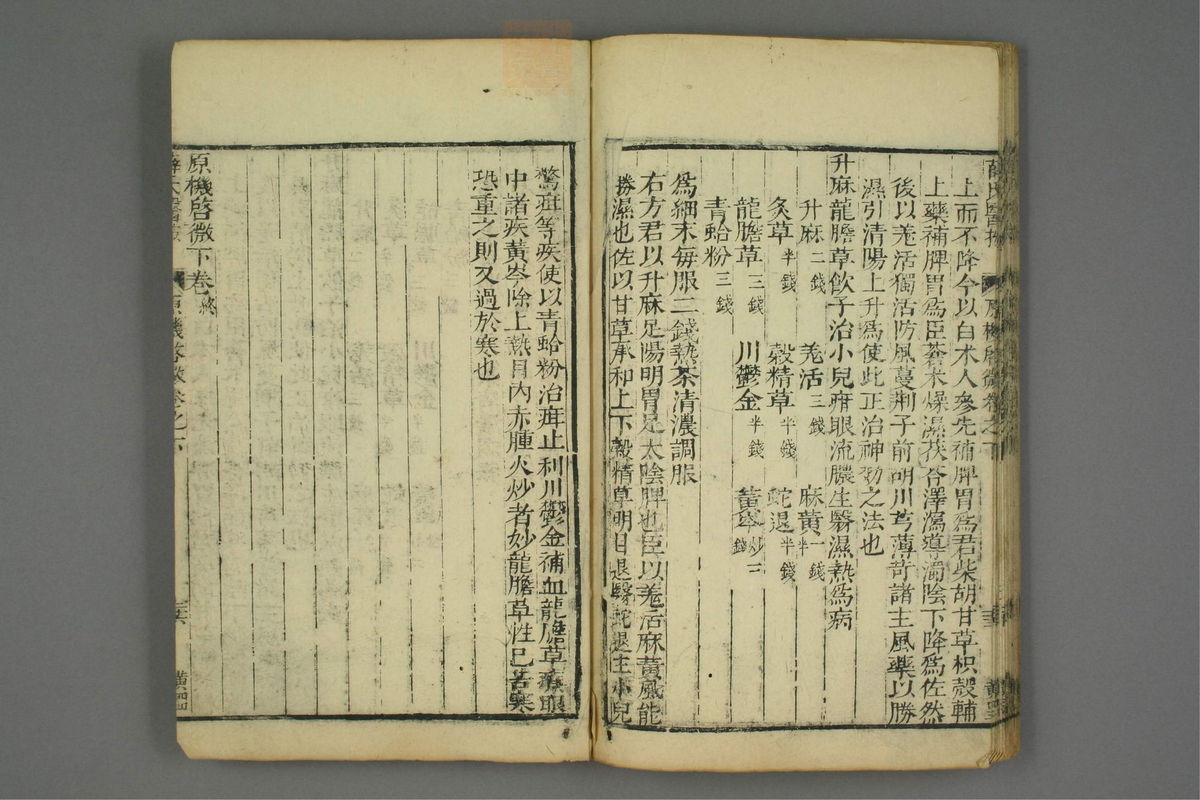 上而不降今以白木人參先補脾胃爲君柴胡甘草枳殻輔
上藥補脾胃爲臣蒼木燥濕茯苓澤瀉導濁陰下降爲佐然
後以羗活獨活防風蔓荆子前胡川芎薄苛諸主風藥以勝
濕引清陽上升爲使此正治神効之法也
升麻龍膽草飲子治小兒疳眼流膿生瞖濕熱爲病
升麻二錢 羗活三錢 麻黄一錢半
灸草半錢 穀精草半錢 蛇退半錢
龍膽草三錢 川鬱金半錢 黄芩炒二錢
青蛤粉三錢
爲細末每服二錢熱茶清濃調服
右方君以升麻足陽明胃足太陰脾也臣以羗活麻黄風能
勝濕也佐以甘草承和上下穀精草明目退瞖蛇退主小兒
原機啓微卷之下
驚疳等疾使以青蛤粉治疳止利川鬱金補血龍膽草療眼
中諸疾黄芩除上熱目内赤腫火炒者妙龍膽草性已苦寒
恐重之則又過於寒也
原機啓微下卷終
原機啓微卷之下